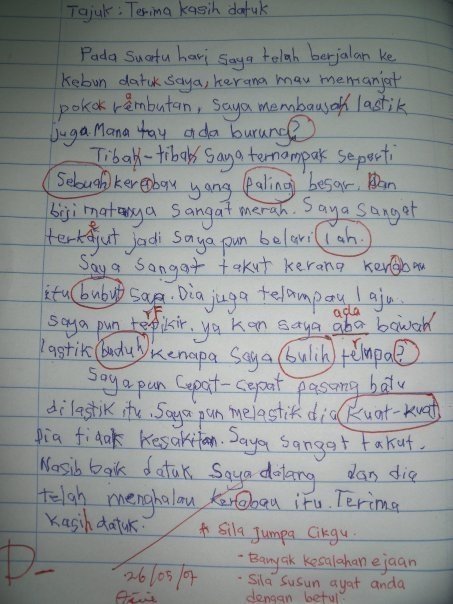 Tajuk : Terima kasih datuk
Pada suatu hari saya telah berjalan ke
kebun datuk saya, kerana mau memanjat
pokok rambutan, saya membawah lastik
juga. Mana tau ada burung?
Tibah-tibah saya ternampak seperti
sebuah kerabau yang paling besar. Dan
biji matanya sangat merah. Saya sangat
terkejut jadi saya pun belari lah.
Saya sangat takut kerana kerabau
itu bubut saya. Dia juga telampau laju.
Saya pun tepikir, ya kan saya aba bawah
ada
rf
lastik buduh kenapa saya bulih telupa?
r
Saya pun cepat-cepat pasang batu
dilastik itu. Saya pun melastik dia kuat-kuat
Dia tidak kesakitan. Saya sangat takut.
Nasib baik datuk saya datang dan dia
telah menghalau kerabau itu. Terima
kasih datuk.
* Sila jumpa Cikgu.
- Banyak kesalahan ejaan
- Sila susun ayat anda
dengan betul.
D-
26/05/07